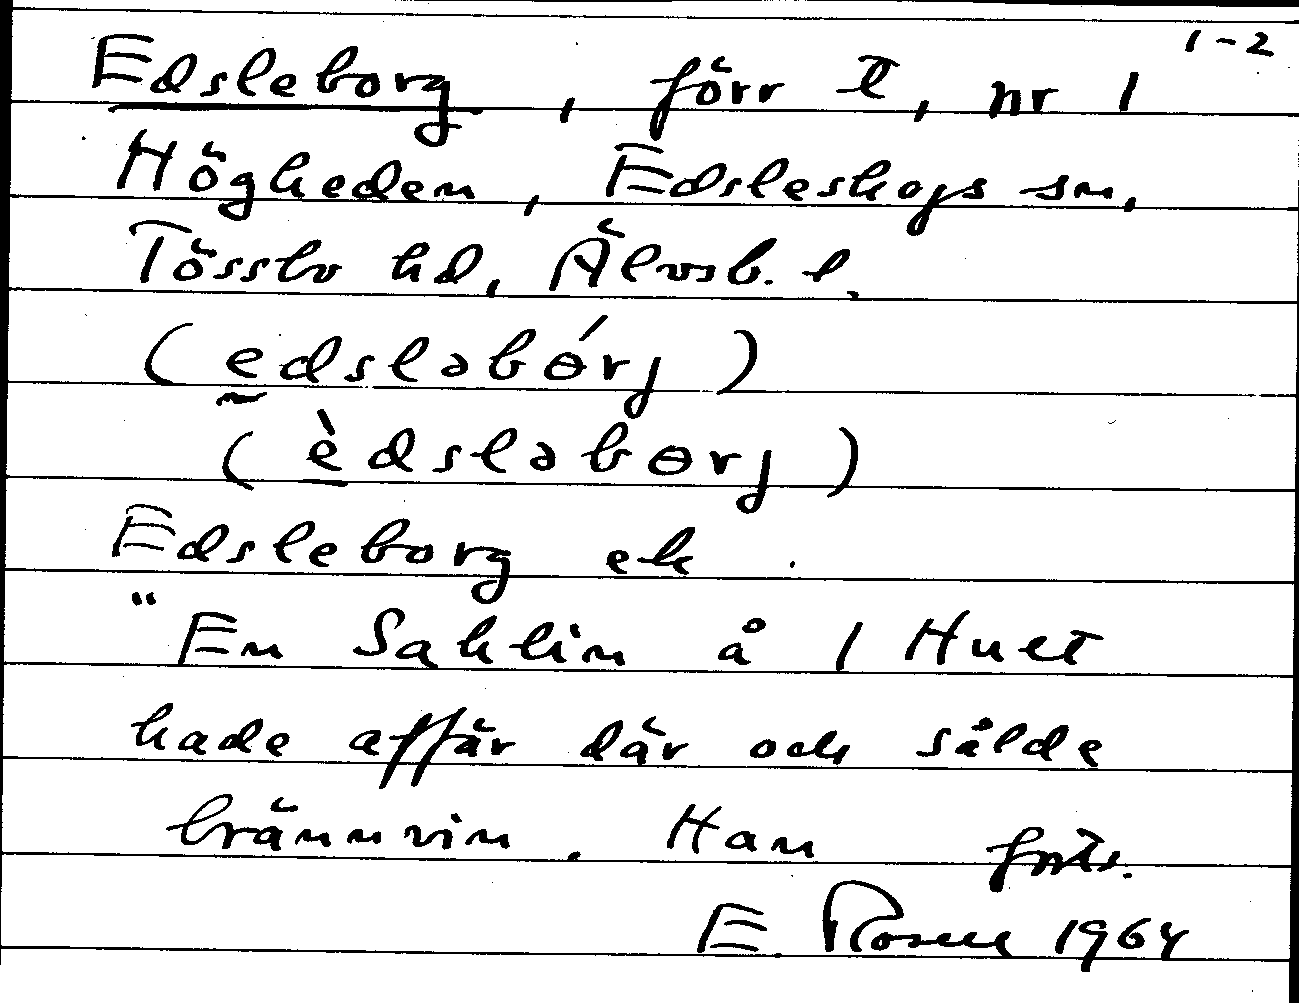 1-2
Edsleborg, förr t, nr 1
Högheden, Edsleskogs sn,
Tössbo hd, Älvsb. l.
(edsləbɵ́rj)
(èdsləbɵrj)
Edsleborg ek.
"En Sahlin å 1 Huet
hade affär där och sålde
brännvin. Han forts.
E. Rosell 1964